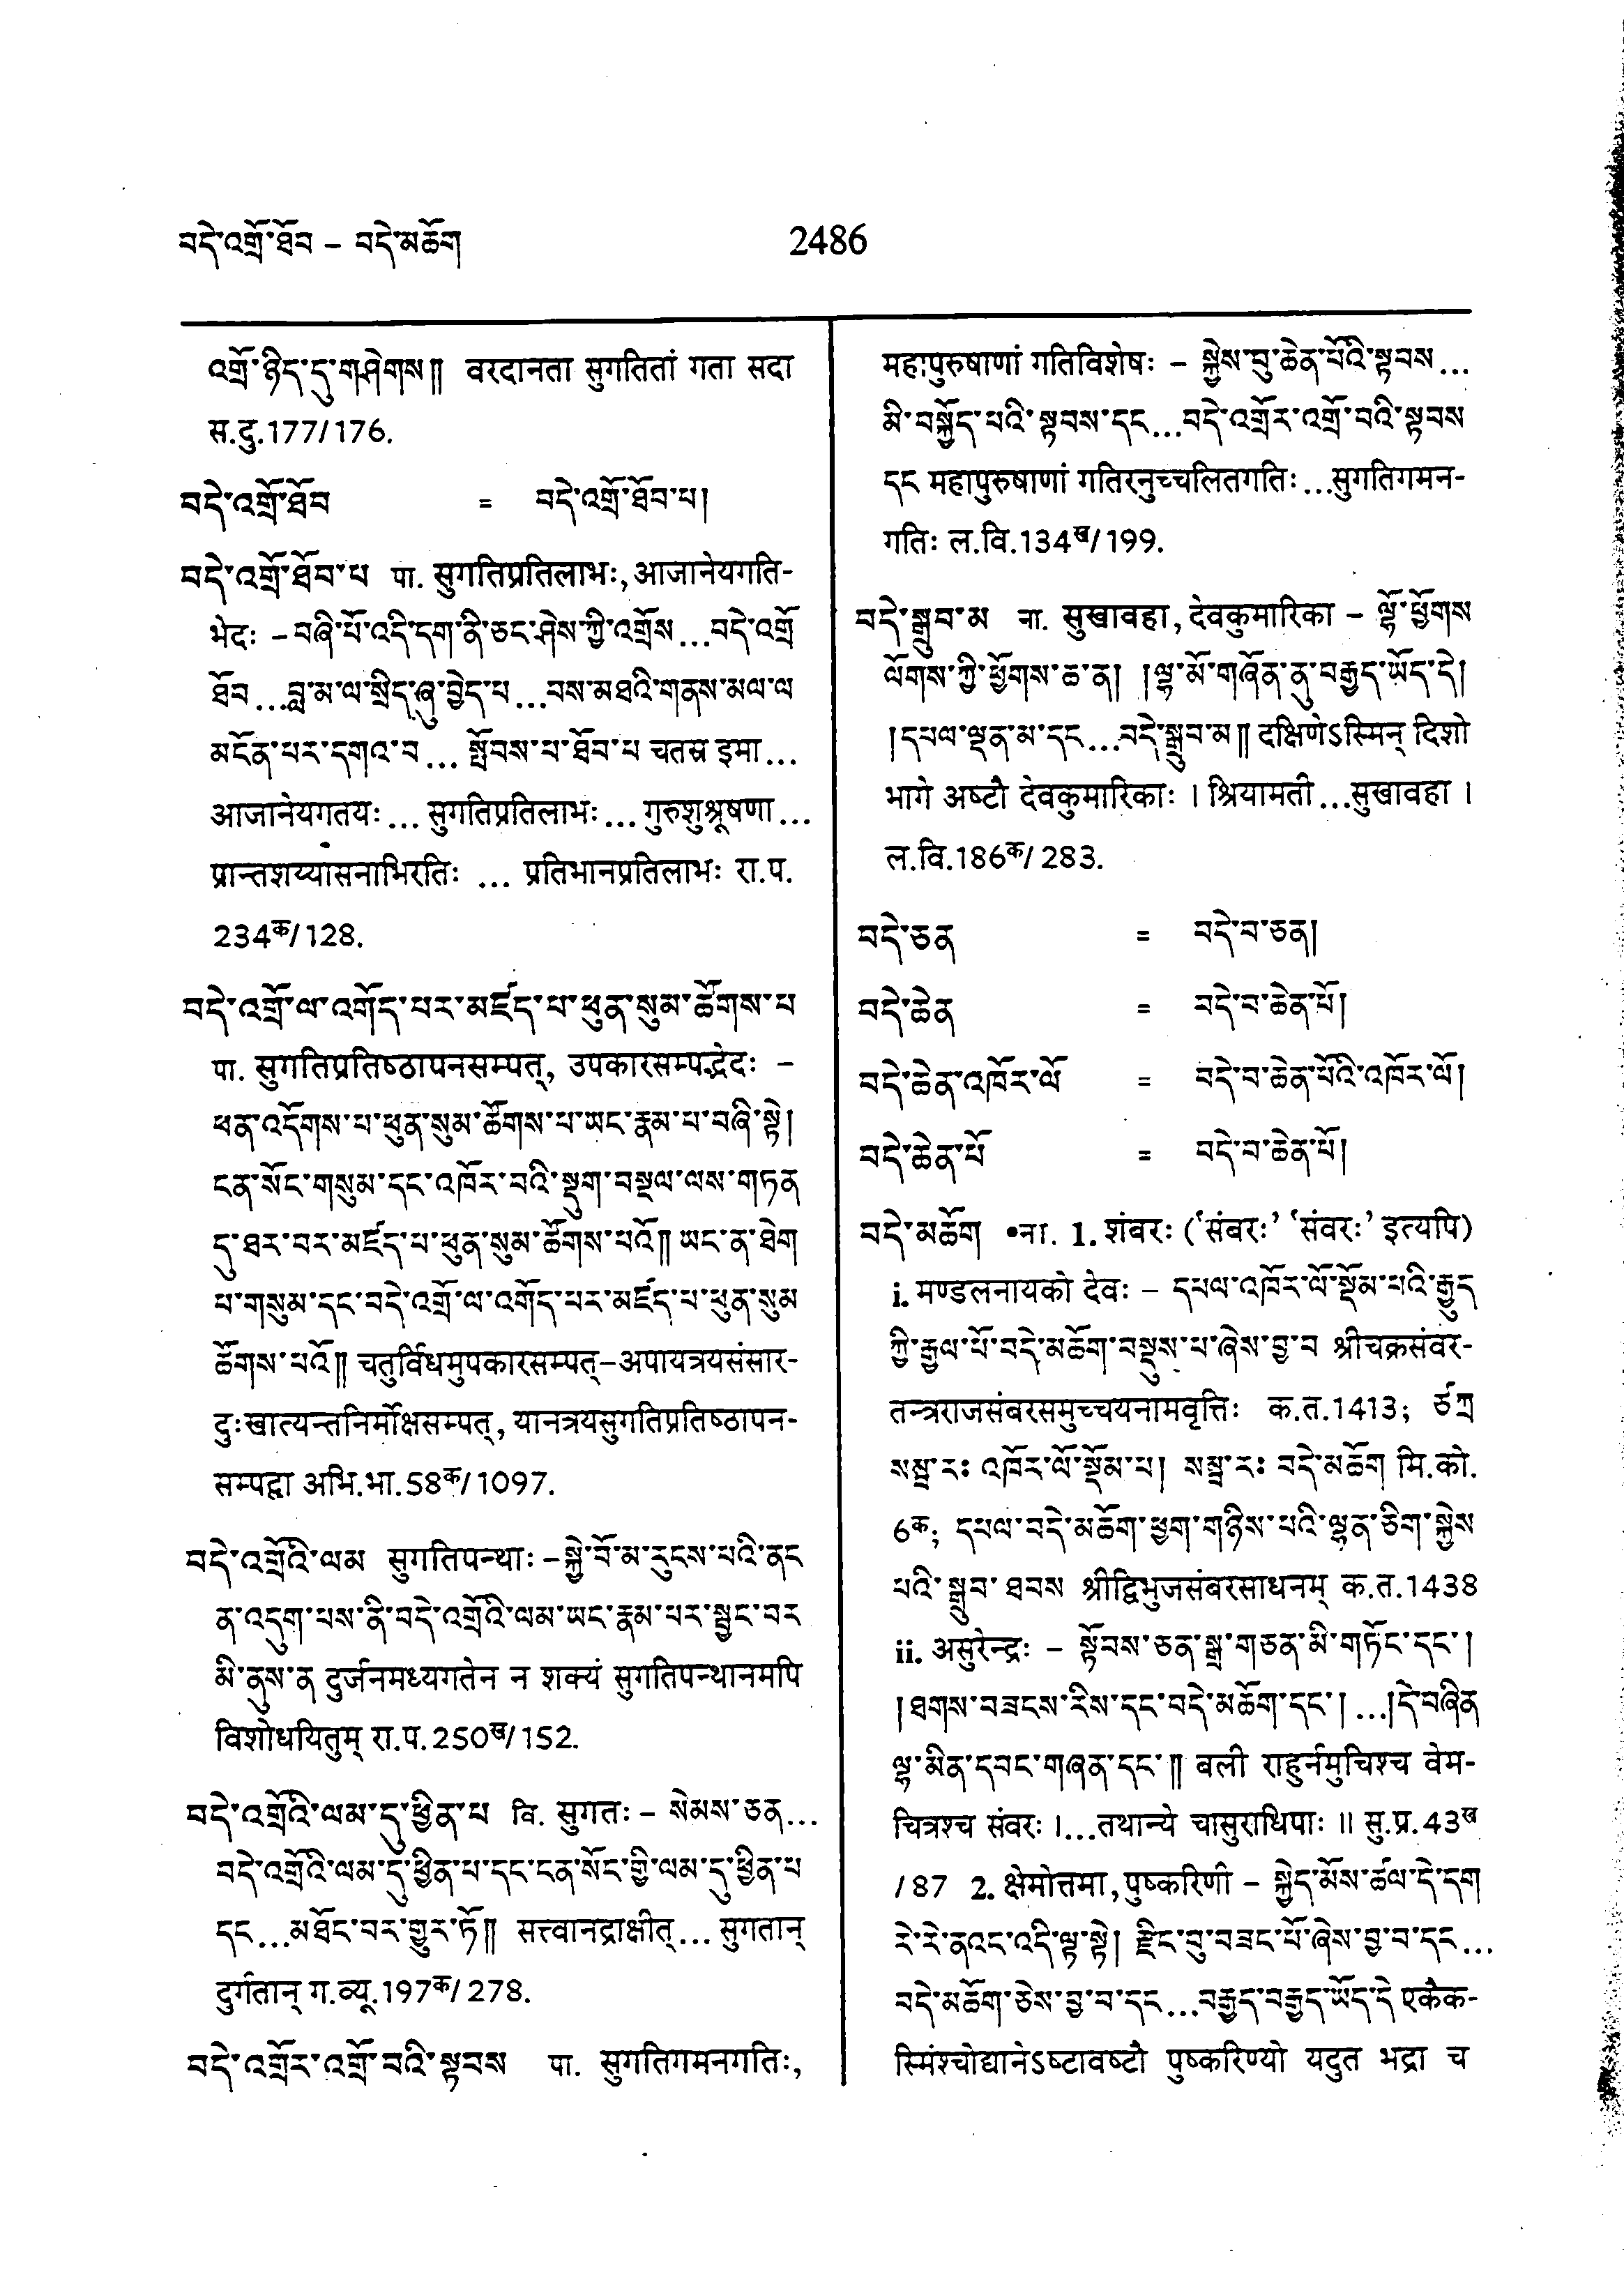 བདེ་འགྲོ་ཐོབ – བདེ་མཆོག
2486
འགྲོ་ཉིད་དུ་གཤེགས༎ वरदानता सुगतितां गता सदा
स.दु.177/176.
བདེ་འགྲོ་ཐོབ = བདེ་འགྲོ་ཐོབ་པ།
བདེ་འགྲོ་ཐོབ་པ पा. सुगतिप्रतिलाभः, आजानेयगति-
भेदः – བཞི་པོ་འདི་དག་ནི་ཅང་ཤེས་ཀྱི་འགྲོས...བདེ་འགྲོ
ཐོབ...བླ་མ་ལ་སྲིད་ཞུ་བྱེད་པ...བས་མཐའི་གནས་མལ་ལ
མངོན་པར་དགའ་བ... སྤོབས་པ་ཐོབ་པ चतस्र इमा...
आजानेयगतयः... सुगतिप्रतिलाभः... गुरुशुश्रूषणा...
प्रान्तशय्यासनाभिरतिः ... प्रतिभानप्रतिलाभः रा.प.
234क/128.
བདེ་འགྲོ་ལ་འགོད་པར་མཛད་པ་ཕུན་སུམ་ཚོགས་པ
पा. सुगतिप्रतिष्ठापनसम्पत्, उपकारसम्पद्भेदः –
ཕན་འདོགས་པ་ཕུན་སུམ་ཚོགས་པ་ཡང་རྣམ་པ་བཞི་སྟེ།
ངན་སོང་གསུམ་དང་འཁོར་བའི་སྡུག་བསྔལ་ལས་གཏན
དུ་ཐར་བར་མཛད་པ་ཕུན་སུམ་ཚོགས་པའོ༎ ཡང་ན་ཐེག
པ་གསུམ་དང་བདེ་འགྲོ་ལ་འགོད་པར་མཛད་པ་ཕུན་སུམ
ཚོགས་པའོ༎ चतुर्विधमुपकारसम्पत्–अपायत्रयसंसार-
दुःखात्यन्तनिर्मोक्षसम्पत्, यानत्रयसुगतिप्रतिष्ठापन-
सम्पद्वा अभि.भा.58क/1097.
བདེ་འགྲོའི་ལམ सुगतिपन्थाः –སྐྱེ་བོ་མ་རུངས་པའི་ནང
ན་འདུག་པས་ནི་བདེ་འགྲོའི་ལམ་ཡང་རྣམ་པར་སྦྱང་བར
མི་ནུས་ན दुर्जनमध्यगतेन न शक्यं सुगतिपन्थानमपि
विशोधयितुम् रा.प.250ख/152.
བདེ་འགྲོའི་ལམ་དུ་ཕྱིན་པ वि. सुगतः – སེམས་ཅན...
བདེ་འགྲོའི་ལམ་དུ་ཕྱིན་པ་དང་ངན་སོང་གྱི་ལམ་དུ་ཕྱིན་པ
དང...མཐོང་བར་གྱུར་ཏོ༎ सत्त्वानद्राक्षीत्... सुगतान्
दुर्गतान् ग.व्यू.197क/278.
བདེ་འགྲོར་འགྲོ་བའི་སྟབས पा. सुगतिगमनगतिः,
महापुरुषाणां गतिविशेषः – སྐྱེས་བུ་ཆེན་པོའི་སྟབས...
མི་བསྐྱོད་པའི་སྟབས་དང...བདེ་འགྲོར་འགྲོ་བའི་སྟབས
དང महापुरुषाणां गतिरनुच्चलितगतिः...सुगतिगमन-
गतिः ल.वि.134ख/199.
བདེ་སྒྲུབ་མ ना. सुखावहा, देवकुमारिका – ལྷོ་ཕྱོགས
ལོགས་ཀྱི་ཕྱོགས་ཆ་ན། །ལྷ་མོ་གཞོན་ནུ་བརྒྱད་ཡོད་དེ།
།དཔལ་ལྡན་མ་དང...བདེ་སྒྲུབ་མ༎ दक्षिणेऽस्मिन् दिशो
भागे अष्टौ देवकुमारिकाः । श्रियामती...सुखावहा ।
ल.वि.186क/283.
བདེ་ཅན = བདེ་བ་ཅན།
བདེ་ཆེན = བདེ་བ་ཆེན་པོ།
བདེ་ཆེན་འཁོར་ལོ = བདེ་བ་ཆེན་པོའི་འཁོར་ལོ།
བདེ་ཆེན་པོ = བདེ་བ་ཆེན་པོ།
བདེ་མཆོག •ना. 1. शंबरः (‘संबरः’ ‘संवरः’ इत्यपि)
i. मण्डलनायको देवः – དཔལ་འཁོར་ལོ་སྡོམ་པའི་རྒྱུད
ཀྱི་རྒྱལ་པོ་བདེ་མཆོག་བསྡུས་པ་ཞེས་བྱ་བ श्रीचक्रसंवर-
तन्त्रराजसंबरसमुच्चयनामवृत्तिः क.त.1413; ཙཀྲ
སམྦ་རཿ འཁོར་ལོ་སྡོམ་པ། སམྦ་རཿ བདེ་མཆོག मि.को.
6क; དཔལ་བདེ་མཆོག་ཕྱག་གཉིས་པའི་ལྷན་ཅིག་སྐྱེས
པའི་སྒྲུབ་ཐབས श्रीद्विभुजसंबरसाधनम् क.त.1438
ii. असुरेन्द्रः – སྟོབས་ཅན་སྒྲ་གཅན་མི་གཏོང་དང་།
།ཐགས་བཟངས་རིས་དང་བདེ་མཆོག་དང་། ...།དེ་བཞིན
ལྷ་མིན་དབང་གཞན་དང་༎ बली राहुर्नमुचिश्च वेम-
चित्रश्च संवरः ।...तथान्ये चासुराधिपाः ॥ सु.प्र.43ख
/87 2. क्षेमोत्तमा, पुष्करिणी – སྐྱེད་མོས་ཚལ་དེ་དག
རེ་རེ་ནའང་འདི་ལྟ་སྟེ། རྫིང་བུ་བཟང་པོ་ཞེས་བྱ་བ་དང...
བདེ་མཆོག་ཅེས་བྱ་བ་དང...བརྒྱད་བརྒྱད་ཡོད་དེ एकैक-
स्मिंश्चोद्यानेऽष्टावष्टौ पुष्करिण्यो यदुत भद्रा च